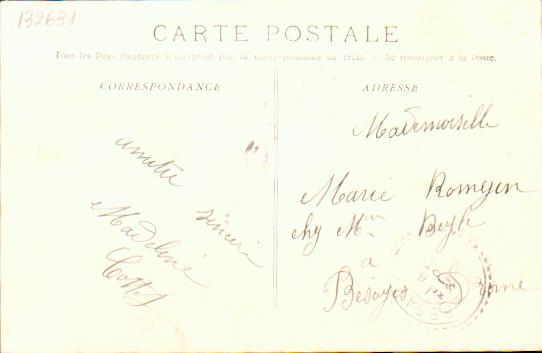 132631
CARTE POSTALE
Tous les Pays étrangers n'acceptent pas la Correspondance au recto. - Se renseigner à la Poste.
CORRESPONDANCE
amitié
sincère
Madeleine
ADRESSE
Mademoiselle
Marie Romeyen
chez Mme
à
Besayes Drome